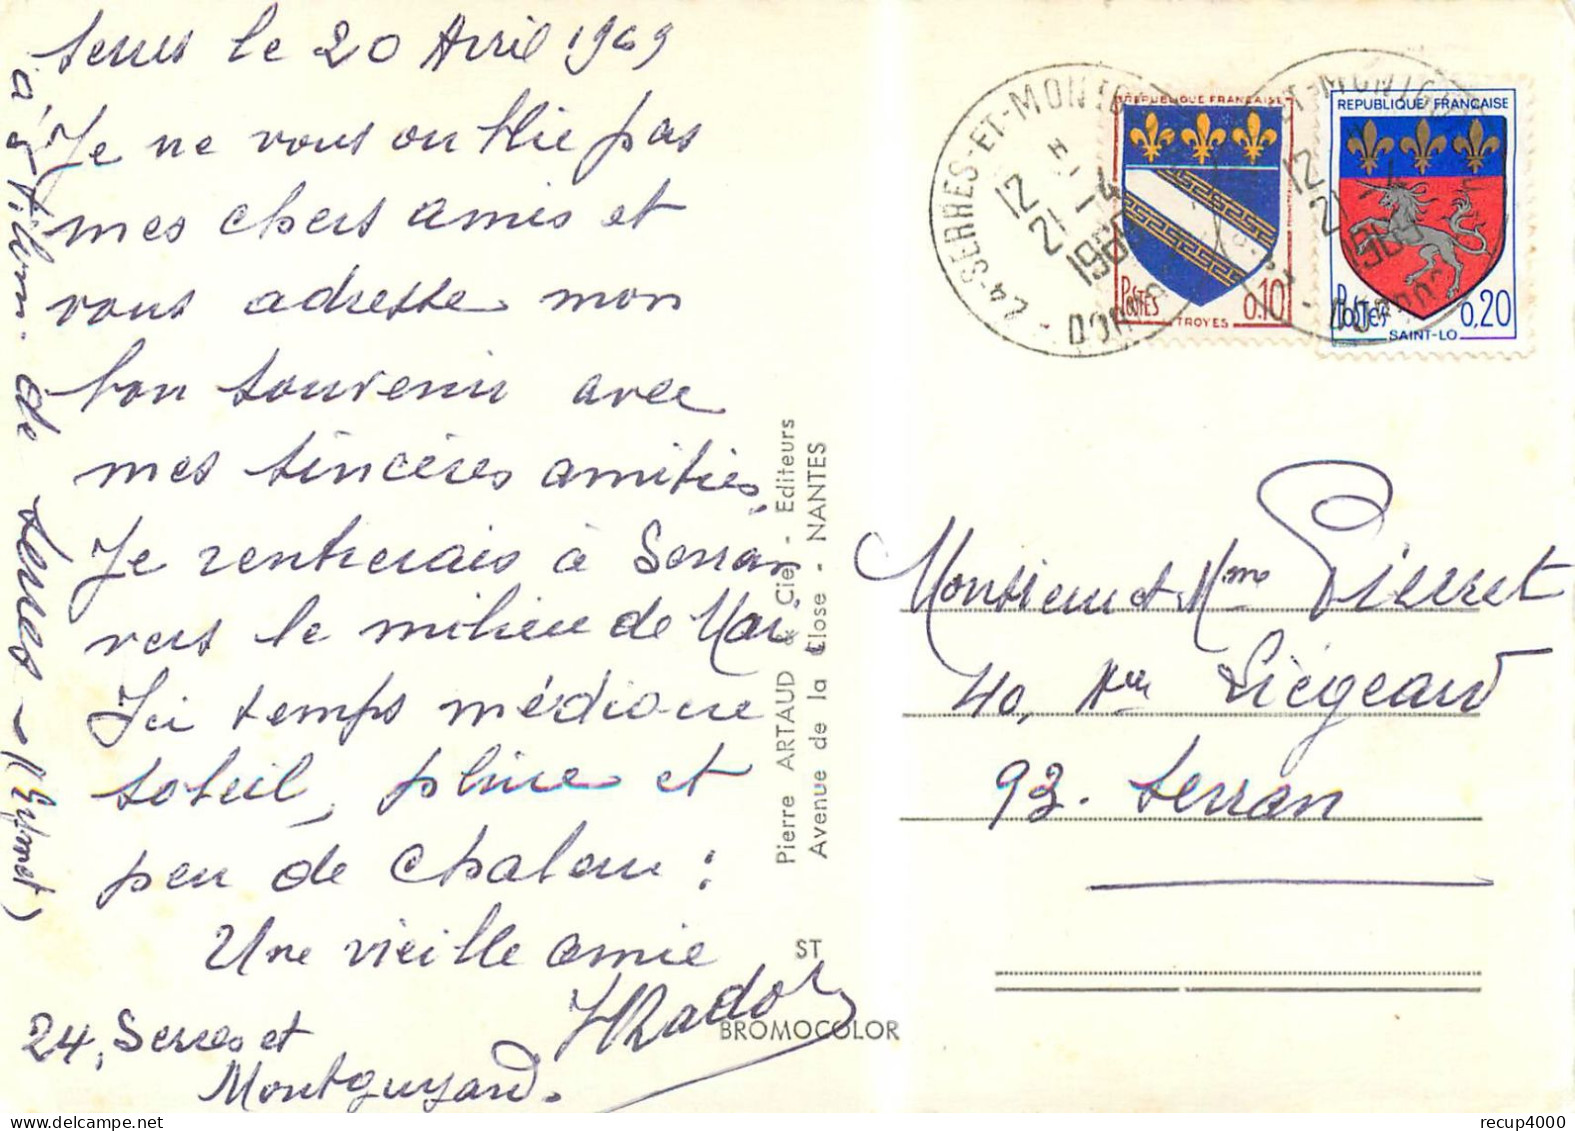 Serres le 20 Avril 1969
Je ne vous oublie pas
mes chers amis et
vous adresse mon
bon souvenir avec
mes sincères amitiés.
Je rentrerais à Sevran
vers le milieu de Mai.
Ici temps médiocre
soleil, pluie et
peu de chaleur :
Une vieille amie
24, Serres et
Montguyard.
à 5 Kilm. de Serres - (Eymet)
Pierre ARTAUD & Cie - Editeurs
Avenue de la Close - NANTES
ST
BROMOCOLOR
24-SERRES-ET-MONTG
12 H
21 -4
1969
DORDOG
REPUBLIQUE FRANÇAISE
POSTES
0,10
TROYES
12
21 -4
1969
REPUBLIQUE FRANÇAISE
POSTES
0,20
SAINT-LO
Monsieur et Mme Pierret
40, Ave Liégeard
93. Sevran
recup4000